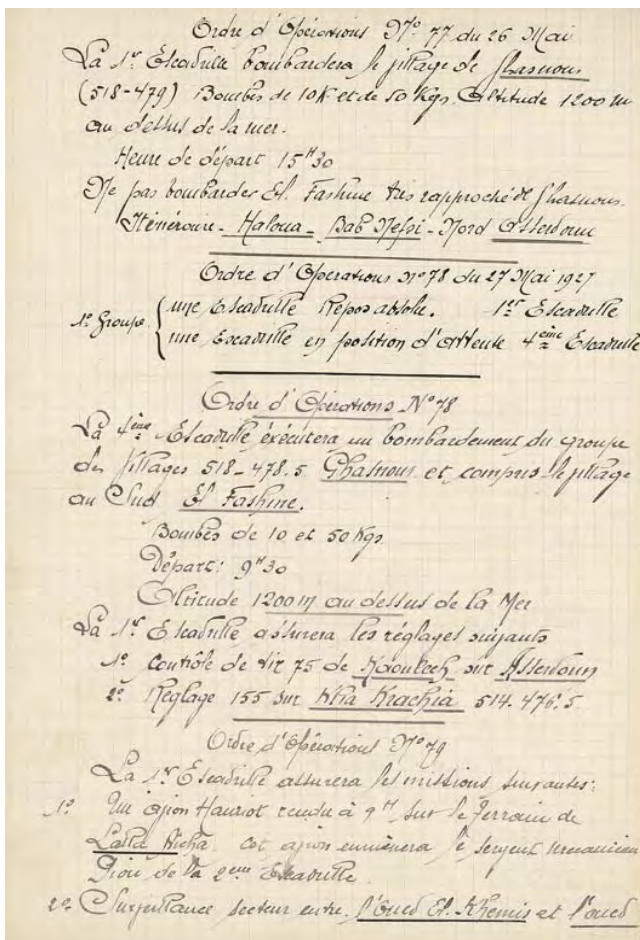 Ordre d'Opérations N° 77 du 26 Mai
La 1re Escadrille bombardera le village de Ghasnous
(518-479) Bombes de 10K et de 50 Kgs. Altitude 1200 m
au dessus de la mer.
Heure de départ 15H30
Ne pas bombarder El Fashine très rapproché de Ghasnous.
Itinéraire - Haloua - Bab Nefsi - Nord Asserdoun
Ordre d'Opérations N° 78 du 27 Mai 1927
1e Groupe { une Escadrille Repos absolu. 1re Escadrille
une Escadrille en position d'attente 4ème Escadrille
Ordre d'Opérations N° 78
La 4ème Escadrille éxécutera un bombardement du groupe
des villages 518-478.5 Ghasnous et compris le village
au Sud El Fashine.
Bombes de 10 et 50 Kgs
Départ: 9H30
Altitude 1200 m au dessus de la Mer
La 1re Escadrille assurera les réglages suivants
1° Contrôle de tir 75 de sur Asserdoun
2° Réglage 155 sur Krachia 514-476.5
Ordre d'Opérations N° 79
La 1re Escadrille assurera les missions suivantes:
1° Un avion Hanriot rendu à 9H sur le Terrain de
Lalla Aicha cet avion emmènera le sergent mécanicien
de la 2ème Escadrille.
2° Surveillance secteur entre l'Oued El Khemis et l'oued